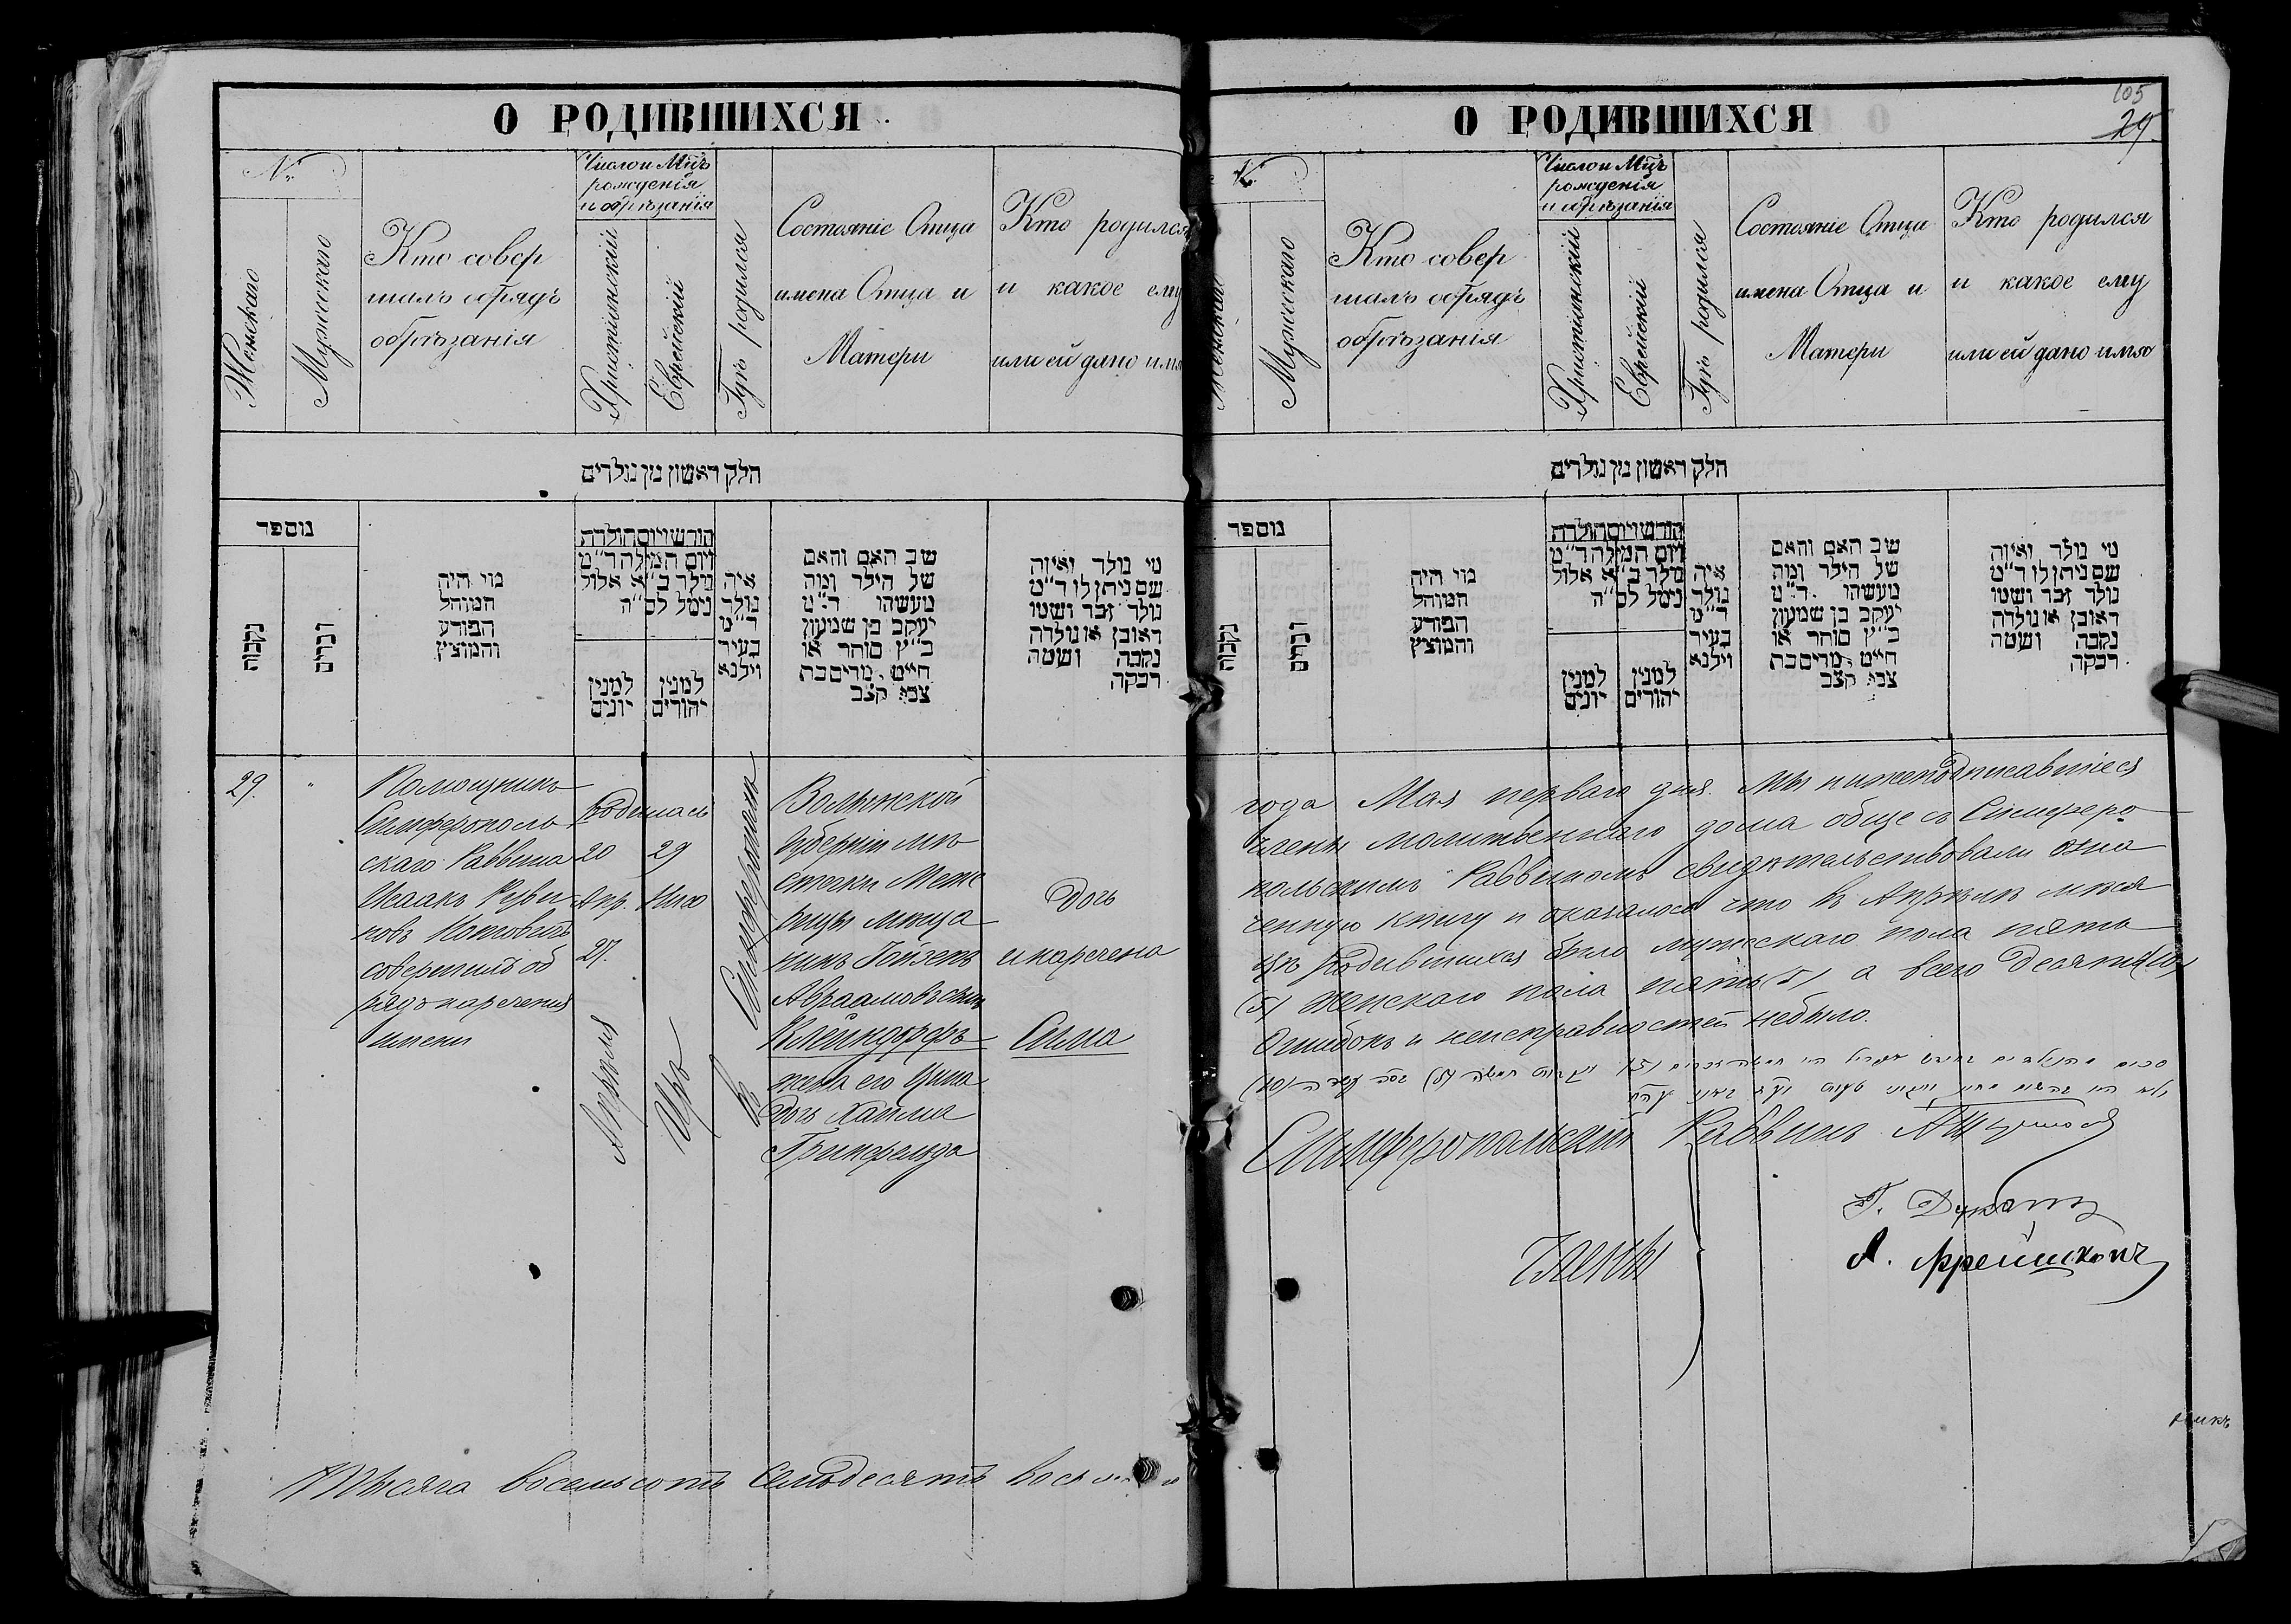 О РОДИВШИХСЯ
№
Женскаго
Мужескаго
Кто совер
шалъ обрядъ
обрѣзанія
Число и Мцъ
рожденія
и обрѣзанія
Христіянскій
Еврейскій
Гдѣ родился
Состояніе Отца
имена Отца и
Матери
Кто родился
и какое ему
или ей дано имя
חלק ראשון מן נולדים
מספר
נקבות
זכרים
מי היה
המוהל
הפורע
והמוצץ
חורש ויום הולדת
ויום המילה ד״מ
נולד ב״א אלול
נימל לס״ה
למנין
יונים
למנין
יהודים
איה
נולד
ד״מ
בעיר
וילנא
שב האם והאם
של הילד ומה
מעשהו ד״מ
יעקב בן שמעון
כ״ץ סוחר או
חייט מרים בת
צבי קצב
מי נולד ואיזה
שם ניתן לו ד״מ
נולד זכר ושמו
ראובן או נולדה
נקבה ושמה
רבקה
29. "
Помощникъ
Симферополь
скаго Раввина
Исаакъ Руви
новъ
совершилъ об
рядъ нареченія
имени
Родилась
20 29
Апр. Нисо
27.
Апрѣля
Иръ
Въ Симферополѣ
Волынской
губерніи мѣ
стечки Меж
рицы мѣща
нинъ
Авраамовъ сынъ
Клейндорфъ
жена его Ципа
дочь Хаима
Гринфельда
Дочь
и наречена
Сима
Тысяча восемьсотъ семьдесятъ
О РОДИВШИХСЯ
105
29
№
Женскаго
Мужескаго
Кто совер
шалъ обрядъ
обрѣзанія
Число и Мцъ
рожденія
и обрѣзанія
Христіянскій
Еврейскій
Гдѣ родился
Состояніе Отца
имена Отца и
Матери
Кто родился
и какое ему
или ей дано имя
חלק ראשון מן נולדים
מספר
נקבות
זכרים
מי היה
המוהל
הפורע
והמוצץ
חורש ויום הולדת
ויום המילה ד״מ
נולד ב״א אלול
נימל לס״ה
למנין
יונים
למנין
יהודים
איה
נולד
ד״מ
בעיר
וילנא
שב האם והאם
של הילד ומה
מעשהו ד״מ
יעקב בן שמעון
כ״ץ סוחר או
חייט מרים בת
צבי קצב
מי נולד ואיזה
שם ניתן לו ד״מ
נולד זכר ושמו
ראובן או נולדה
נקבה ושמה
רבקה
года Мая перваго дня. Мы нижеподписавшіеся
члены молитвеннаго дома обще съ Симферо
польскимъ Раввиномъ свидѣтельствовали озна
ченную книгу и оказалось что въ Апрѣлѣ мѣся
цѣ родившихся было мужескаго пола пять
(5) женскаго пола пять (5) а всего десять (10)
Ошибокъ и неисправностей небыло.
Симферопольскій Раввинъ
Члены